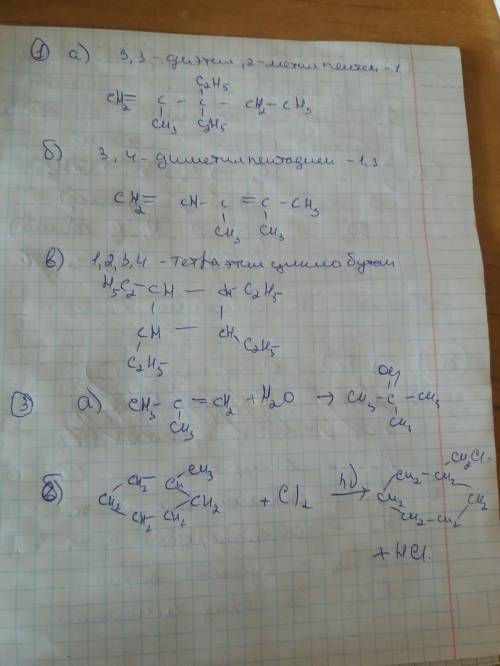 ① а) 3,3-диэтил,2-метилпентен-1
C₂H₅
CH₂= C - C - CH₂-CH₃
CH₃ C₂H₅
б) 3,4-диметилпентадиен-1,3
CH₂= CH-C=C-CH₃
CH₃ CH₃
в) 1,2,3,4-тетраэтилциклобутан
H₅C₂-CH — CH C₂H₅
CH — CH
C₂H₅ C₂H₅
OH
③ а) CH₃-C=CH₂+H₂O → CH₃-C-CH₃
CH₃ CH₃
CH₃ CH₂Cl
CH₂ CH CH₂-CH₂
б) CH₂ CH₂ + Cl₂ hν→ CH₂ CH₂
CH₂ CH₂ CH₂-CH₂
+HCl.